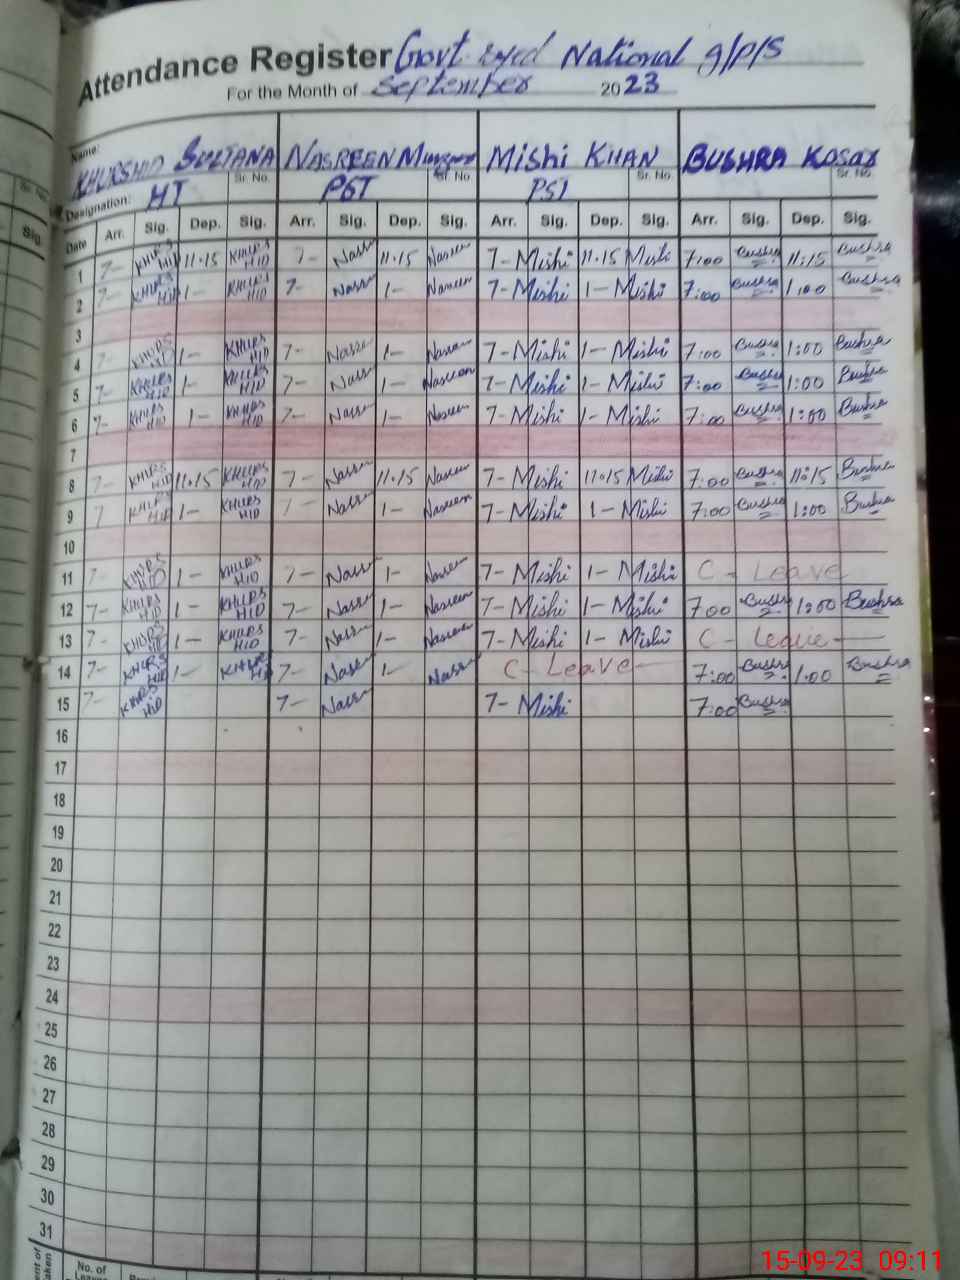 Attendance Register Govt National g/p/s
For the Month of September 2023
Name: KHURSHID SULTANA NASREEN MISHI KHAN BUSHRA KOSAR
Sr. No. Sr. No. Sr. No. Sr. No.
Designation: HT PST PST
Date Arr. Sig. Dep. Sig. Arr. Sig. Dep. Sig. Arr. Sig. Dep. Sig. Arr. Sig. Dep. Sig.
1 7- KHURSHID 11.15 KHURSHID 7- Nasr 11.15 Nasreen 7- Mishi 11.15 Mishi 7:00 Bushra 11:15 Bushra
2 7- KHURSHID 1- KHURSHID 7- Nasr 1- Nasreen 7- Mishi 1- Mishi 7:00 Bushra 1:00 Bushra
3
4 7- KHURSHID 1- KHURSHID 7- Nasr 1- Nasreen 7- Mishi 1- Mishi 7:00 Bushra 1:00 Bushra
5 7- KHURSHID 1- KHURSHID 7- Nasr 1- Nasreen 7- Mishi 1- Mishi 7:00 Bushra 1:00 Bushra
6 7- KHURSHID 1- KHURSHID 7- Nasr 1- Nasreen 7- Mishi 1- Mishi 7:00 Bushra 1:00 Bushra
7
8 7- KHURSHID 11.15 KHURSHID 7- Nasr 11.15 Nasreen 7- Mishi 11.15 Mishi 7:00 Bushra 11:15 Bushra
9 7 KHURSHID 1- KHURSHID 7- Nasr 1- Nasreen 7- Mishi 1- Mishi 7:00 Bushra 1:00 Bushra
10
11 7- KHURSHID 1- KHURSHID 7- Nasr 1- Nasreen 7- Mishi 1- Mishi C - Leave
12 7- KHURSHID 1- KHURSHID 7- Nasr 1- Nasreen 7- Mishi 1- Mishi 7:00 Bushra 1:00 Bushra
13 7- KHURSHID 1- KHURSHID 7- Nasr 1- Nasreen 7- Mishi 1- Mishi C - Leave
14 7- KHURSHID 1- KHURSHID 7- Nasr 1- Nasr C - Leave 7:00 Bushra 1:00 Bushra
15 7- KHURSHID 7- Nasr 7- Mishi 7:00 Bushra
16
17
18
19
20
21
22
23
24
25
26
27
28
29
30
31
No. of
15-09-23 09:11